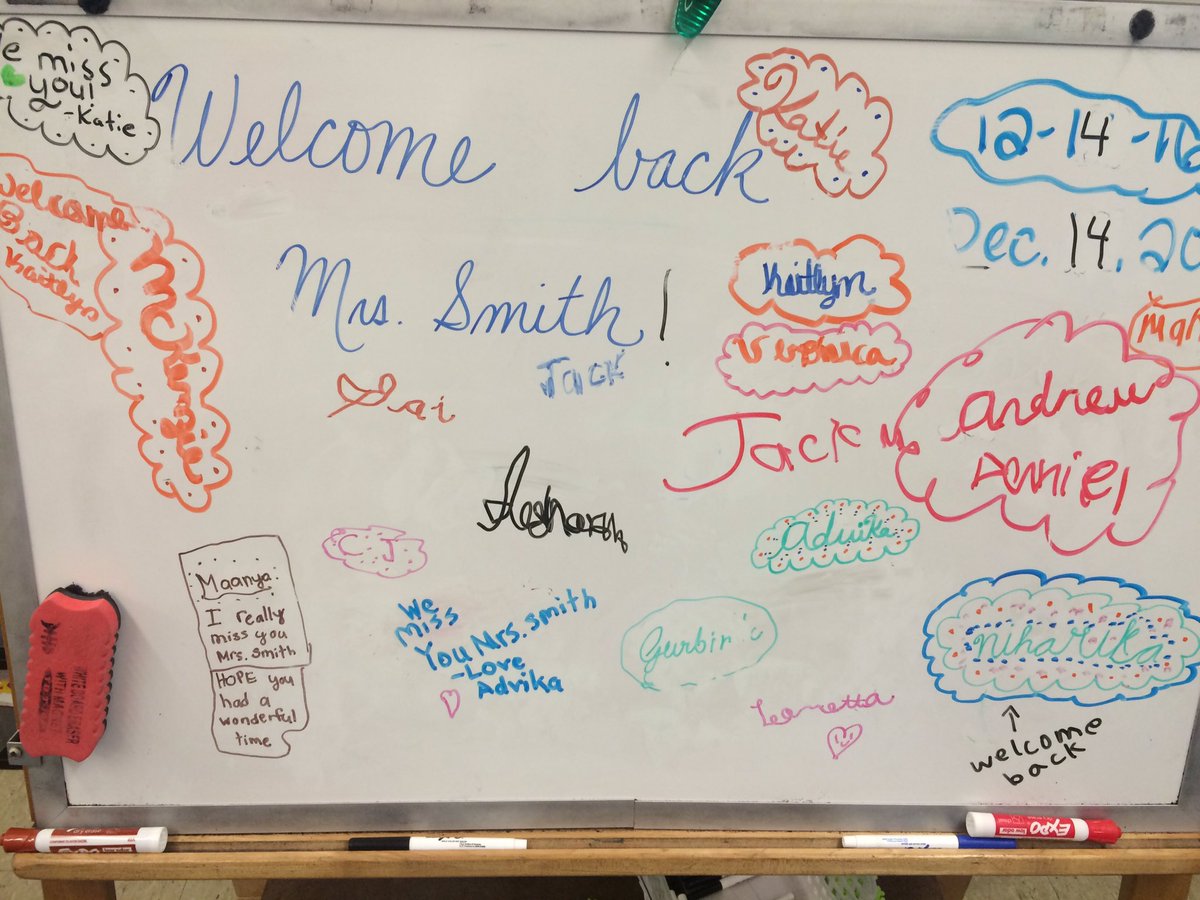 e miss
you!
-Katie
Welcome back
Mrs. Smith!
Katie
12-14-16
Dec. 14, 20
Welcome
Back
Kaitlyn
Kaitlyn
Veronica
Jack
Sai
Jack M
Andrew
Daniel
CJ
Advika
Maanya
I really
miss you
Mrs. Smith
HOPE you
had a
wonderful
time
We
miss
You Mrs. Smith
-Love
Advika
Gurbir
niharika
welcome
back
EXPO